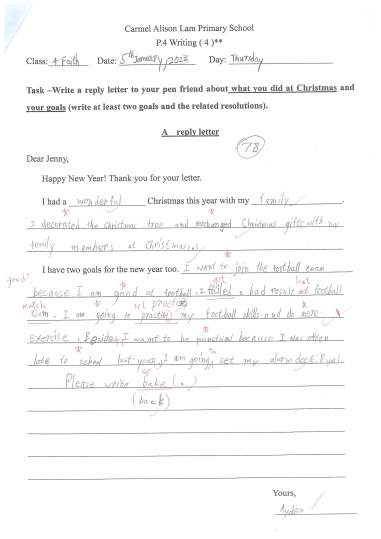 Carmel Alison Lam Primary School
P.4 Writing ( 4 )**
Class: 4 Faith Date: 5th January, 2023 Day: Thursday
Task –Write a reply letter to your pen friend about what you did at Christmas and
your goals (write at least two goals and the related resolutions).
A reply letter
78
Dear Jenny,
Happy New Year! Thank you for your letter.
I had a wonderful Christmas this year with my family.
I decorated the Christmas tree and exchanged Christmas gifts with my
family members at Christmas.
I have two goals for the new year too. I want to join the football team
good? got last
because I am good at football, I a bad result football
match practise
team. I am going to practise my football skills and do more
exercise, I want to be punctual because I was often
to
late to school last year, I am going set my alarm clock
sp.
Please write bake (.)
(back)
Yours,
Ayden